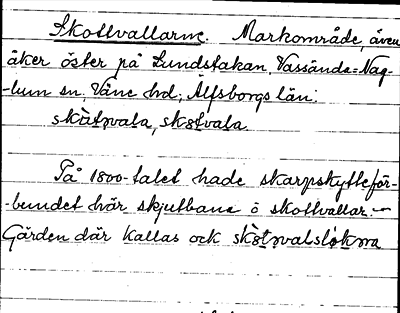 Skottvallarne. Markområde, även
åker öster på Lundstakan, Vassända-Nag-
-lum sn. Väne hd, Älfsborgs län.
skåtvala, skåtvala.
På 1800-talet hade skarpskytteför-
-bundet här skjutbana ö skottvallar. -
Gärden där kallas ock